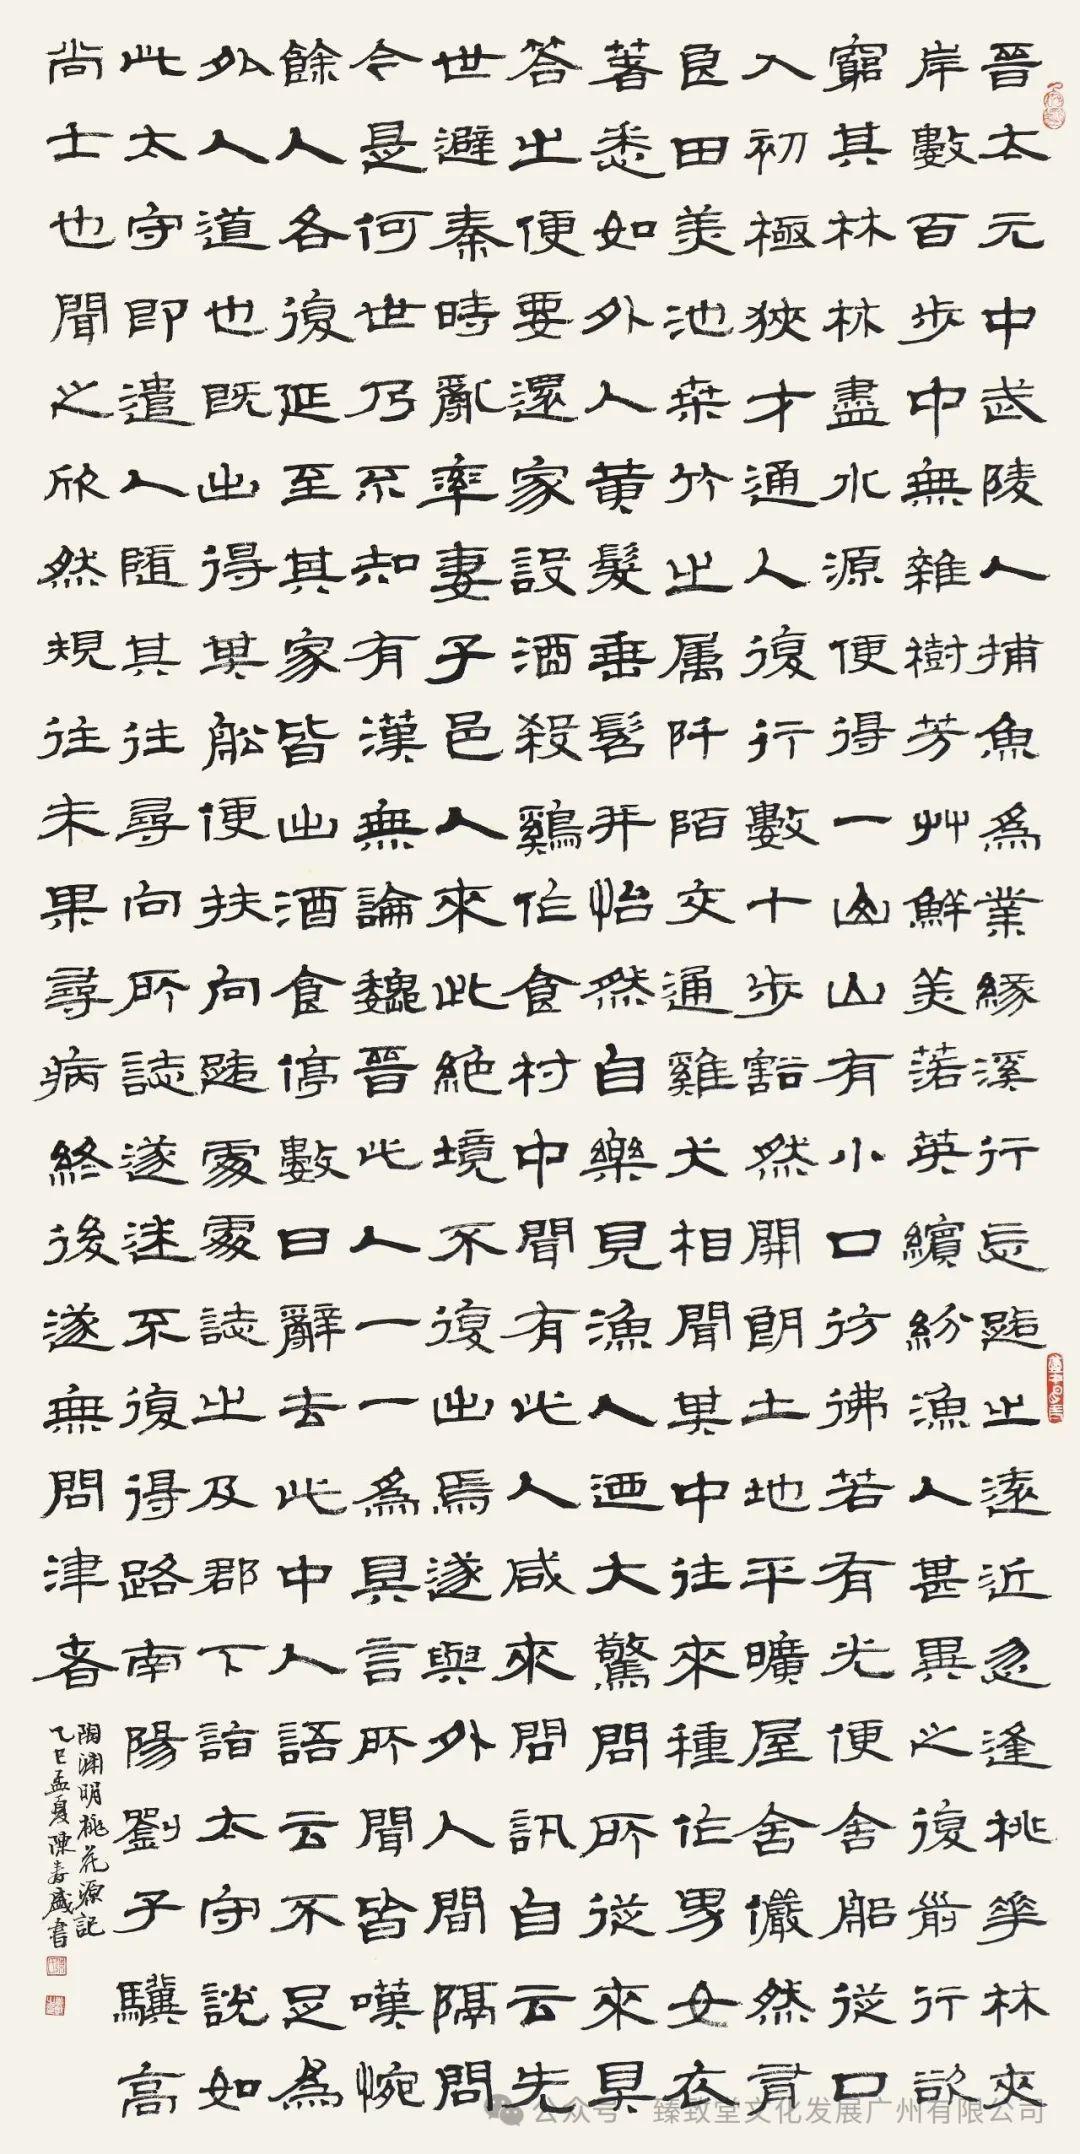 晉太元中武陵人捕魚為業緣溪行忘路之遠近忽逢桃華林夾
岸數百步中無雜樹芳艸鮮美落英繽紛漁人甚異之復前行欲
窮其林林盡水源便得一山山有小口彷彿若有光便舍船從口
入初極狹才通人復行數十步豁然開朗土地平曠屋舍儼然有
良田美池桑竹之属阡陌交通雞犬相聞其中往來種作男女衣
著悉如外人黃髮垂髫并怡然自樂見漁人迺大驚問所從來具
答之便要還家設酒殺鷄作食村中聞有此人咸來問訊自云先
世避秦時亂率妻子邑人來此絕境不復出焉遂與外人間隔問
今是何世乃不知有漢無論魏晉此人一一為具言所聞皆嘆惋
餘人各復延至其家皆出酒食停數日辭去此中人語云不足為
外人道也既出得其船便扶向路處處誌之及郡下詣太守說如
此太守即遣人隨其往尋向所誌遂迷不復得路南陽劉子驥高
尚士也聞之欣然規往未果尋病終後遂無問津者
陶淵明桃花源記
乙巳孟夏陳盛書
公众号·臻致堂文化发展广州有限公司